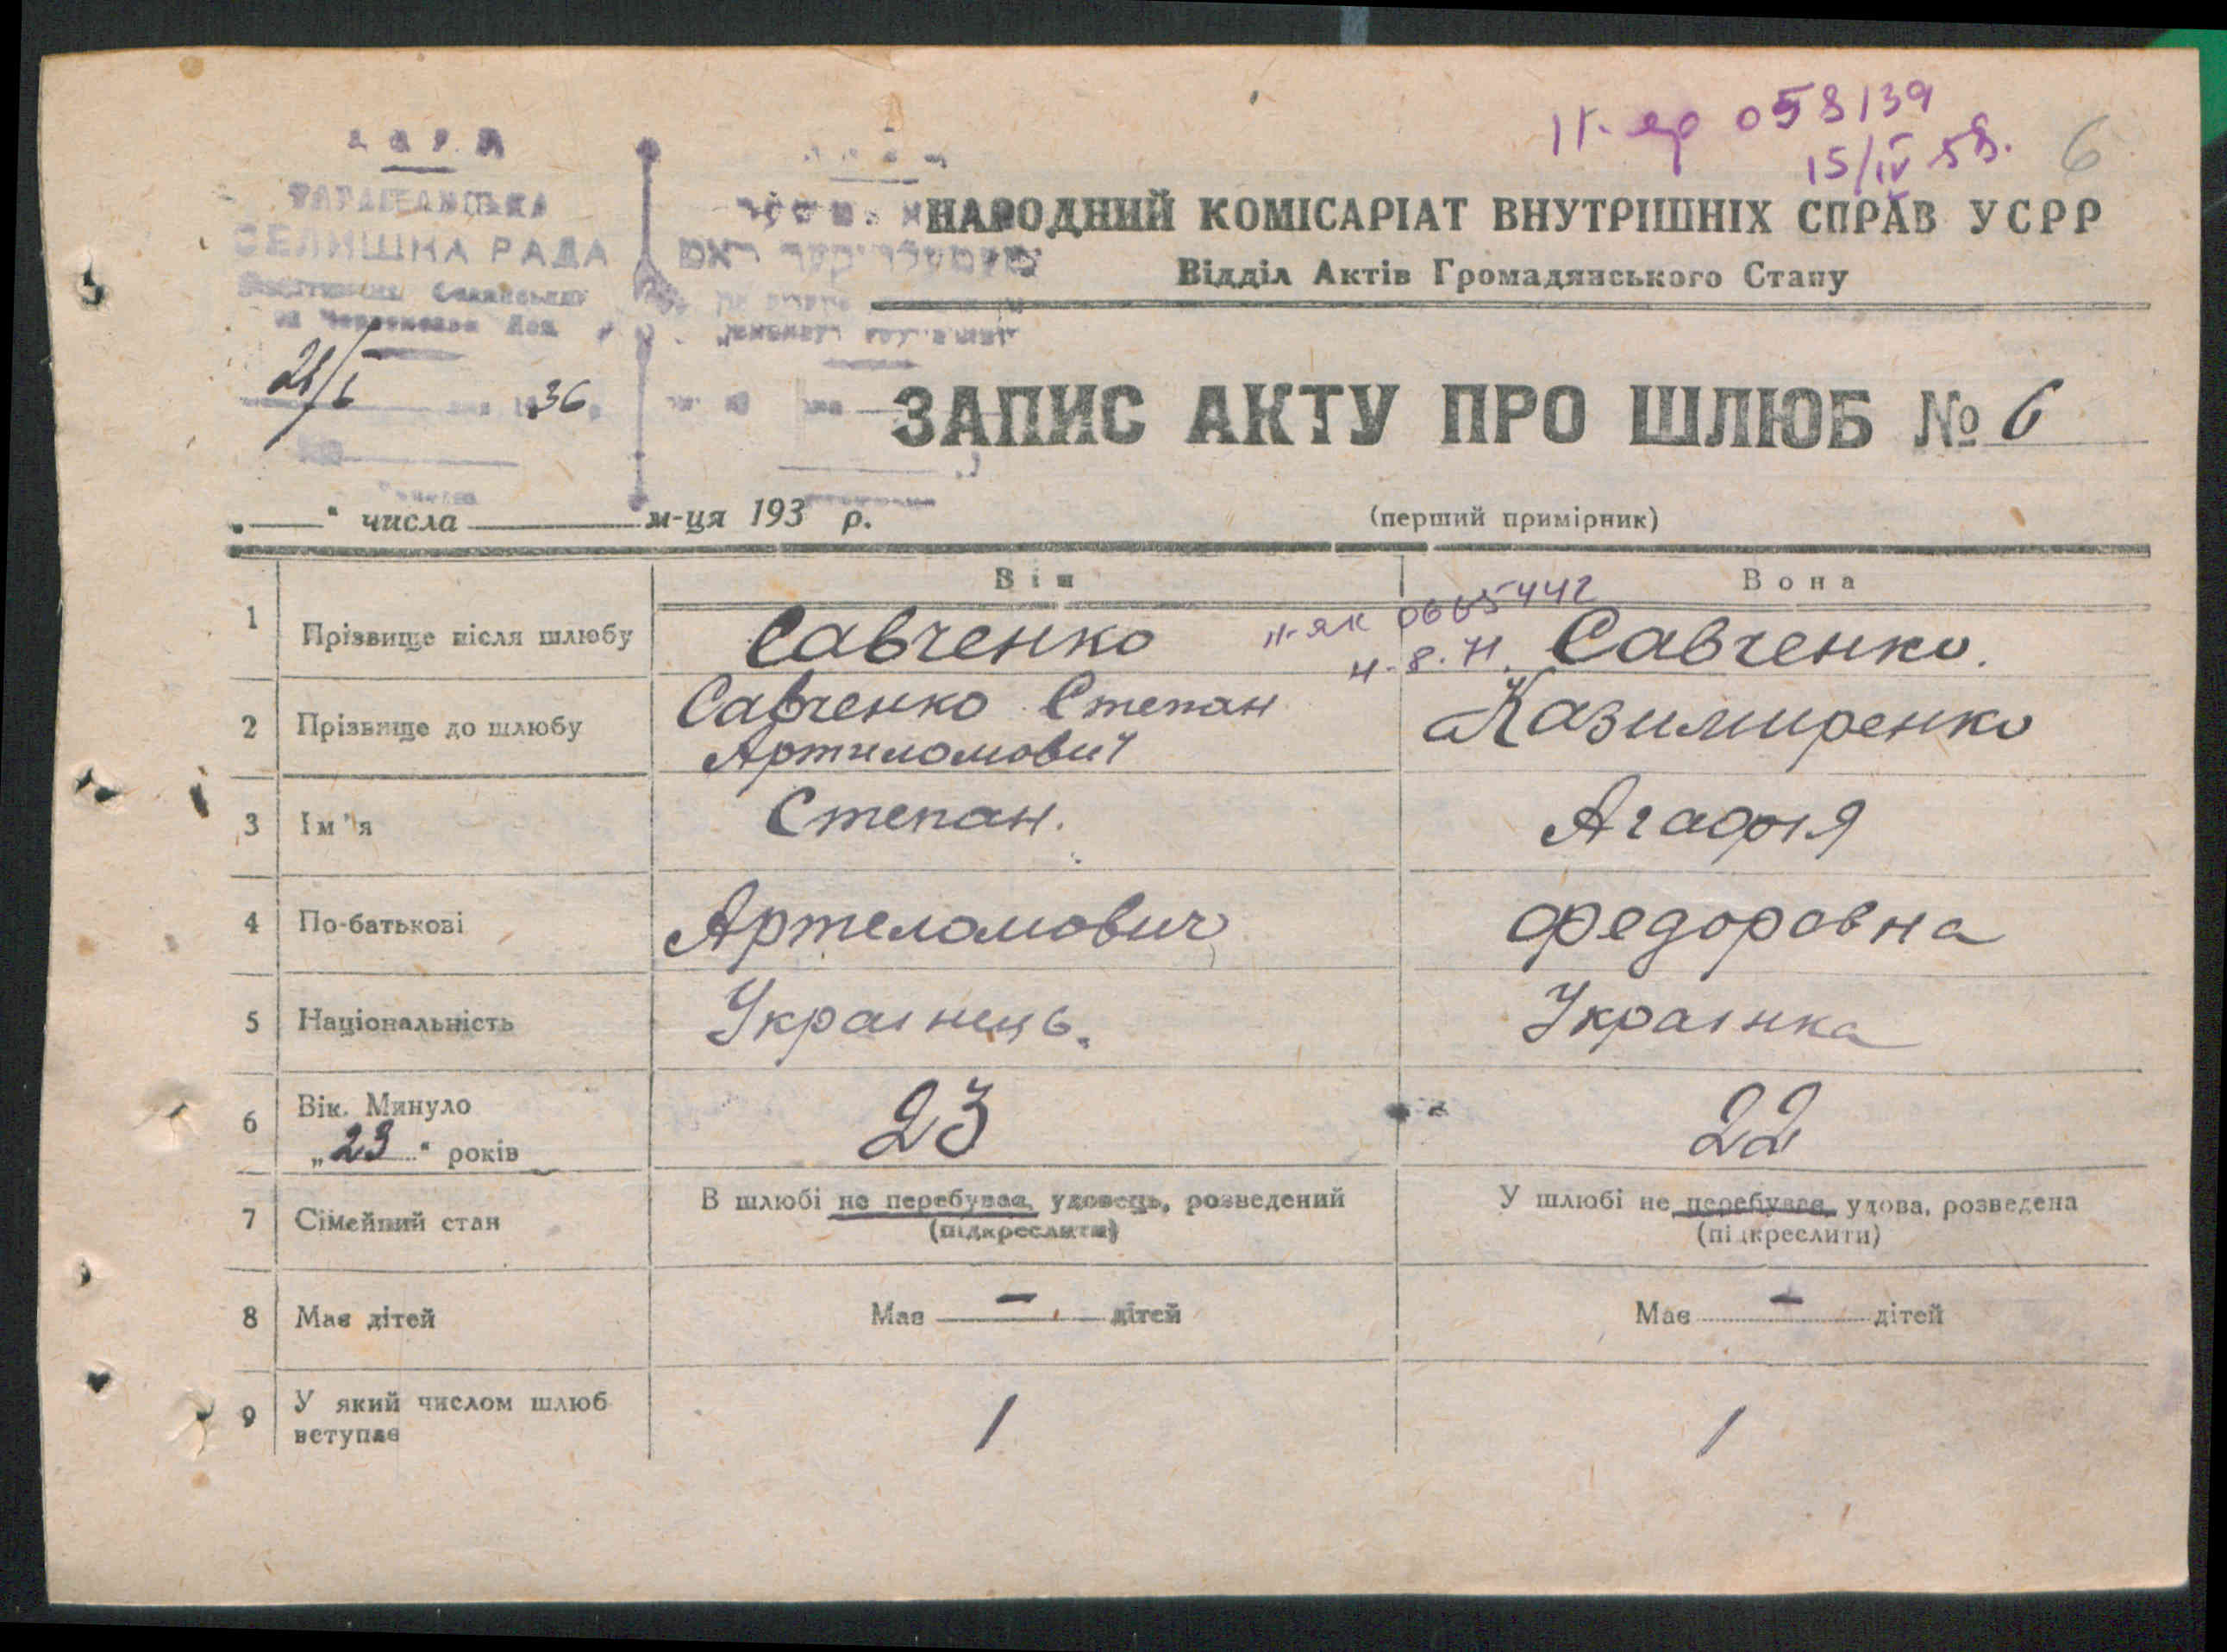 ІІ-яр 058139
15/IV 58.
6
СЕЛИШНА РАДА
21/I 36
НАРОДНИЙ КОМІСАРІАТ ВНУТРІШНІХ СПРАВ УСРР
Відділ Актів Громадянського Стану
ЗАПИС АКТУ ПРО ШЛЮБ № 6
„ “ числа м-ця 193 р. (перший примірник)
Він Вона
1 Прізвище після шлюбу Савченко Савченко.
ІІ-ЯК 0665442
4.8.71.
2 Прізвище до шлюбу Савченко Степан Казимиренко
Артиломович
3 Ім'я Степан. Агафія
4 По-батькові Артеломович Федоровна
5 Національність Українець. Українка
6 Вік. Минуло 23 22
„23“ років
7 Сімейний стан В шлюбі не перебуває, удовець, розведений У шлюбі не перебуває, удова, розведена
(підкреслити) (підкреслити)
8 Має дітей Має — дітей Має — дітей
9 У який числом шлюб 1 1
вступає